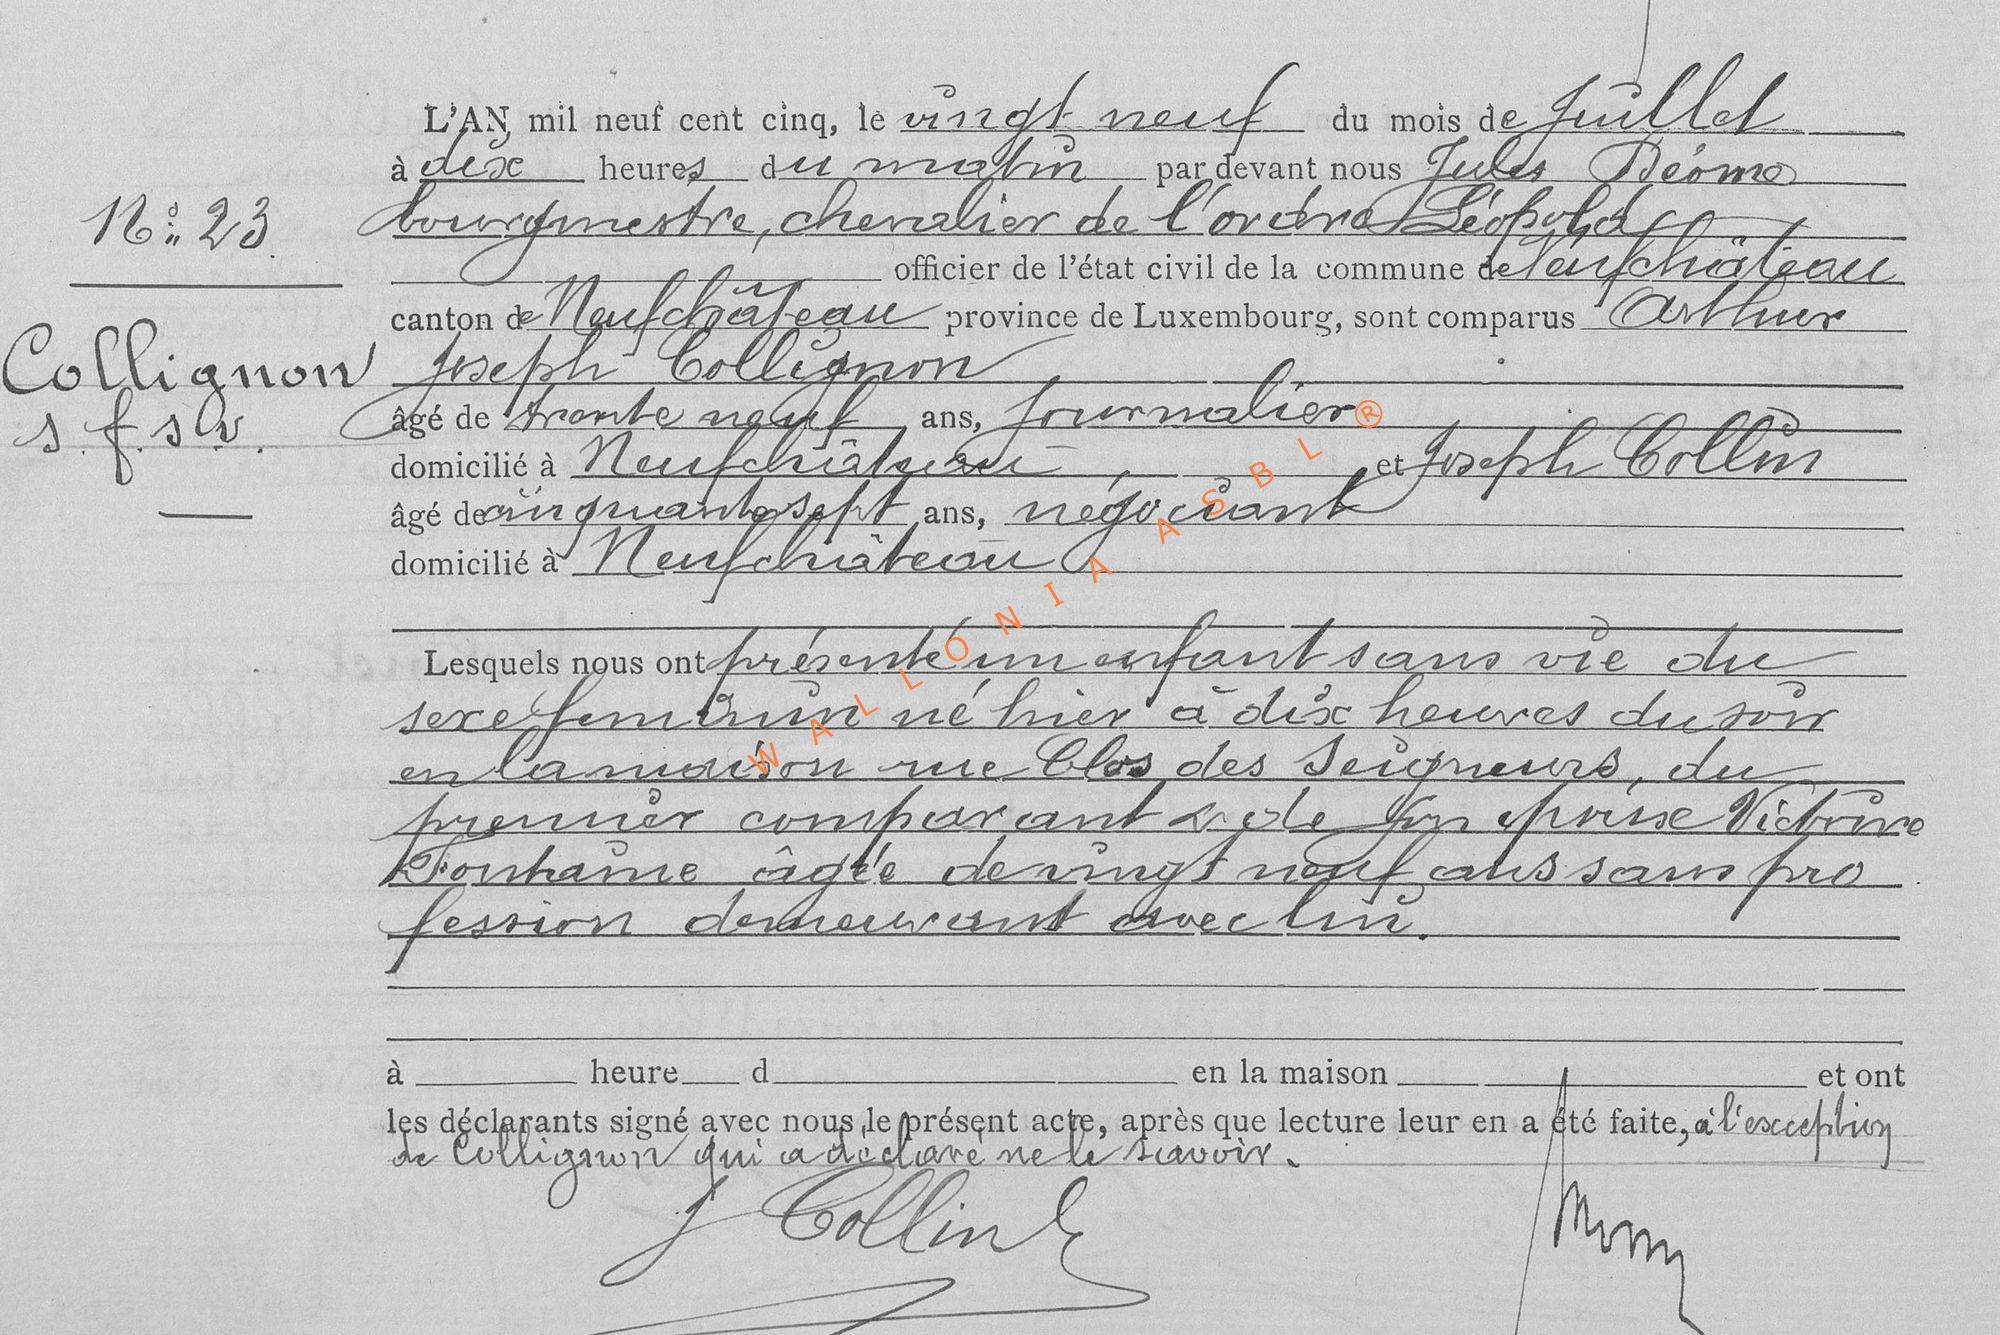 L'AN mil neuf cent cinq, le vingt neuf du mois de Juillet
à dix heures du matin par devant nous Jules
bourgmestre, chevalier de l'ordre Léopold
officier de l'état civil de la commune de Neufchâteau
N° 23
canton de Neufchâteau province de Luxembourg, sont comparus Arthur
Collignon
Joseph Collignon
s. f. s. v.
âgé de trente neuf ans, journalier
domicilié à Neufchâteau et Joseph Collin
âgé de cinquante sept ans, négociant
domicilié à Neufchâteau
Lesquels nous ont présenté un enfant sans vie du
sexe féminin né hier à dix heures du soir
en la maison rue Clos des Seigneurs, du
premier comparant & de son épouse Victorine
Fontaine âgée de vingt neuf ans sans pro
fession demeurant avec lui.
à heure d en la maison et ont
les déclarants signé avec nous le présent acte, après que lecture leur en a été faite, à l'exception
de Collignon qui a déclaré ne le savoir.
J Collin
WALLONIA ASBL ®